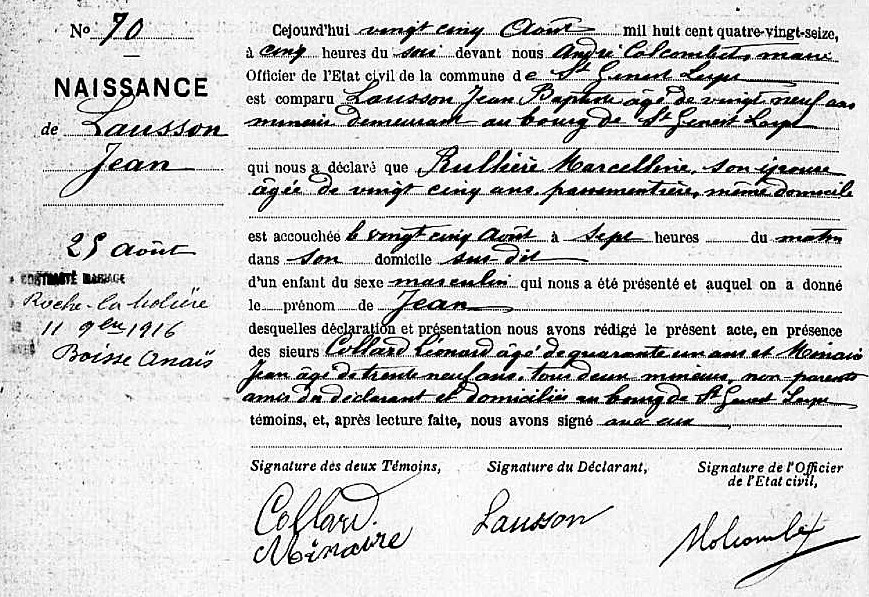 No 70
NAISSANCE
de Lausson
Jean
25 août
CONTRACTÉ MARIAGE
Roche-la-Molière
11 9bre 1916
avec
Boisse Anaïs
Cejourd'hui vingt cinq Août mil huit cent quatre-vingt-seize,
à cinq heures du soir devant nous André Colcombet, maire
Officier de l'Etat civil de la commune de St Genest Lerpt
est comparu Lausson Jean Baptiste âgé de vingt neuf ans
mineur demeurant au bourg de St Genest Lerpt
qui nous a déclaré que Rullière Marcelline, son épouse
âgée de vingt cinq ans, passementière, même domicile
est accouchée le vingt cinq Août à sept heures du matin
dans son domicile sus-dit
d'un enfant du sexe masculin qui nous a été présenté et auquel on a donné
le prénom de Jean
desquelles déclaration et présentation nous avons rédigé le présent acte, en présence
des sieurs Collard Léonard âgé de quarante un ans et Minaire
Jean âgé de trente neuf ans, tous deux mineurs, non parents
amis du déclarant et domiciliés au bourg de St Genest Lerpt
témoins, et, après lecture faite, nous avons signé avec eux
Signature des deux Témoins,
Signature du Déclarant,
Signature de l'Officier
de l'Etat civil,
Collard
Minaire
Lausson